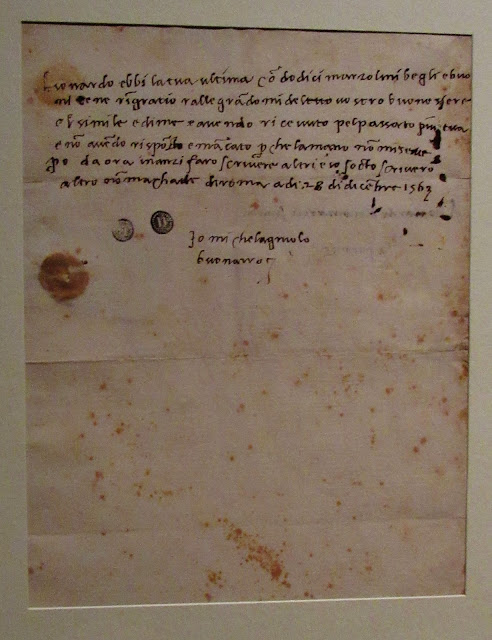 Lionardo ebbi la tua ultima cō dodici marzolini begli e buo
ni te ne rigratio rallegrādomi del tucto vostro buono essere
e 'l simile e di me e avendo ricievuto pel passato più tua
e nō avēdo rispōsto è mācato p che la mano nō mi serve
p̄o da ora inanzi farò scrivere altri e io soctoscriverrò
altro nō m achade di roma a dì 28 di dicēbre 1563
Io Michelagniolo
buonarroti